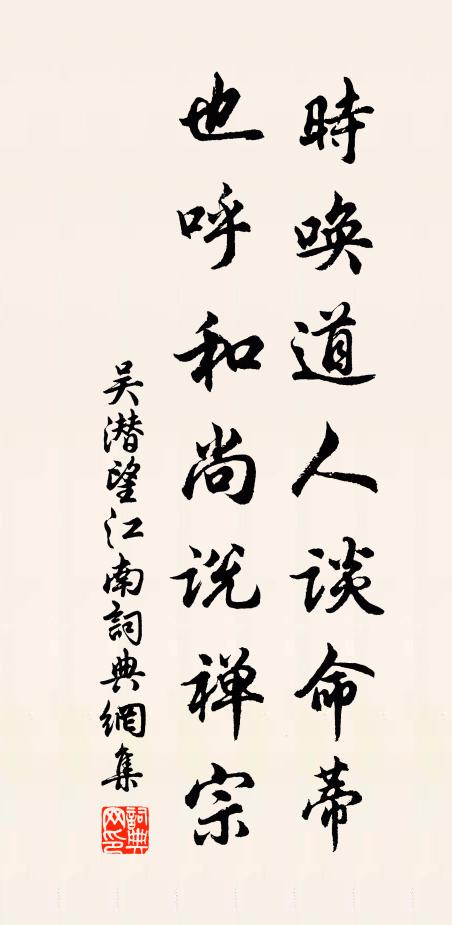 時唤道人谈命蒂
也呼和尚说禅宗
吴潜望江南詞典網集
詞典
网印